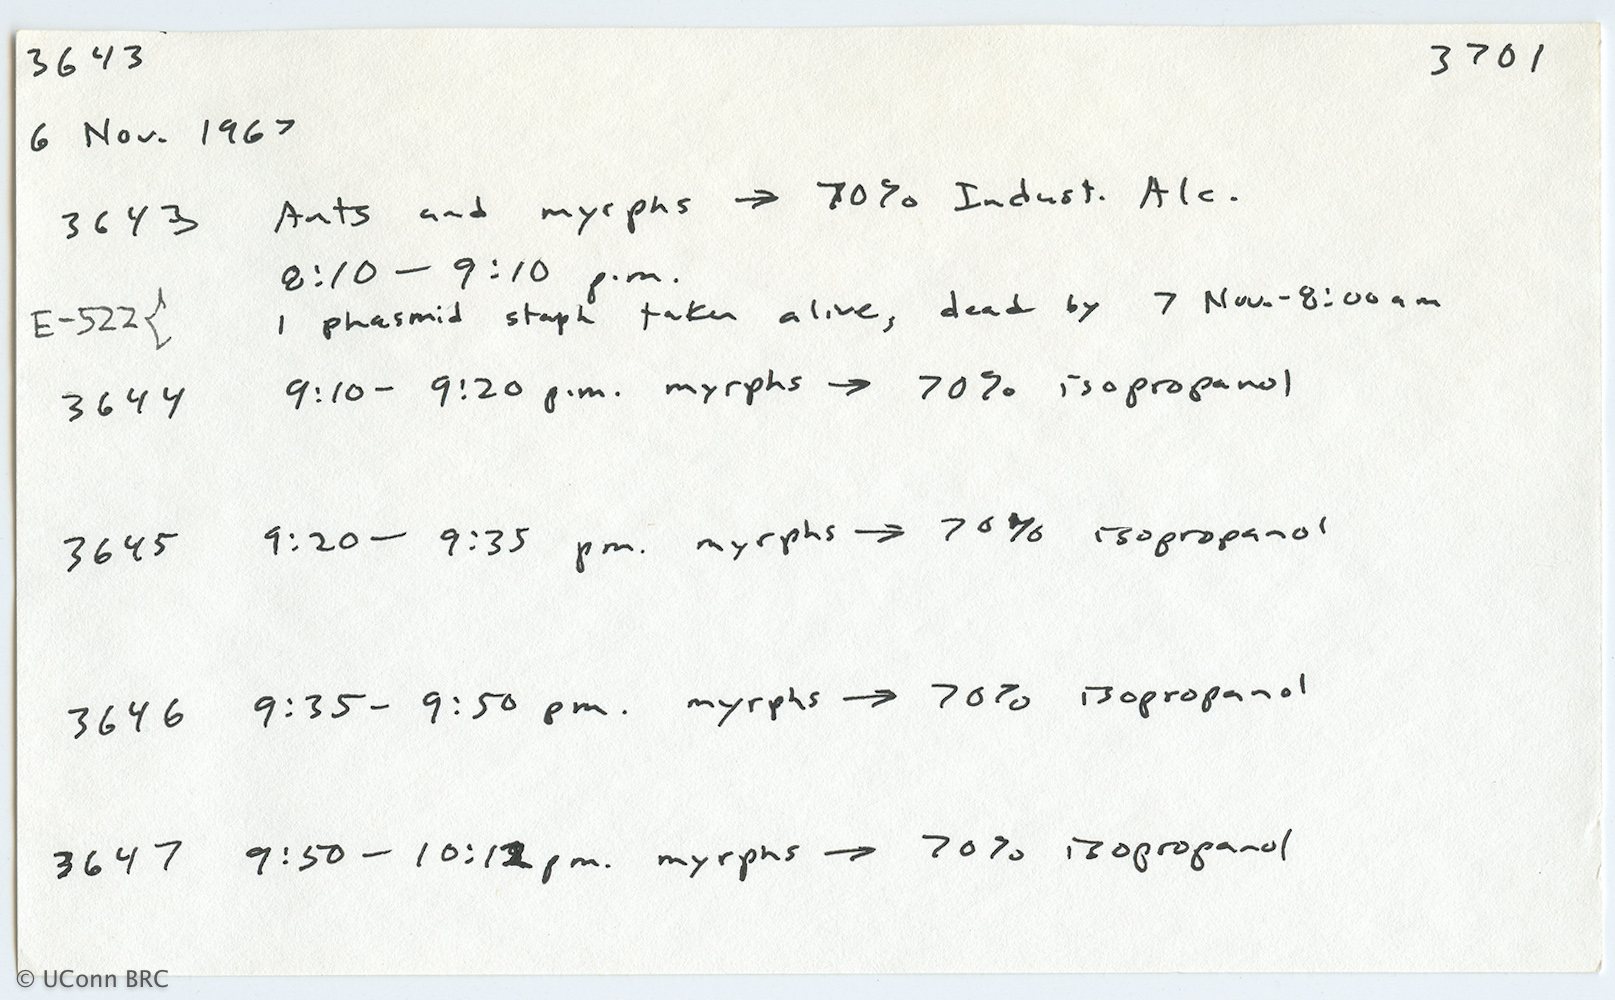 3643 3701
6 Nov. 1967
3643 Ants and myrphs → 70% Indust. Alc.
8:10 – 9:10 p.m.
E-522{ 1 phasmid staph taken alive, dead by 7 Nov.-8:00am
3644 9:10 – 9:20 p.m. myrphs → 70% isopropanol
3645 9:20 – 9:35 pm. myrphs → 70% isopropanol
3646 9:35 – 9:50 pm. myrphs → 70% isopropanol
3647 9:50 – 10:12 pm. myrphs → 70% isopropanol
© UConn BRC